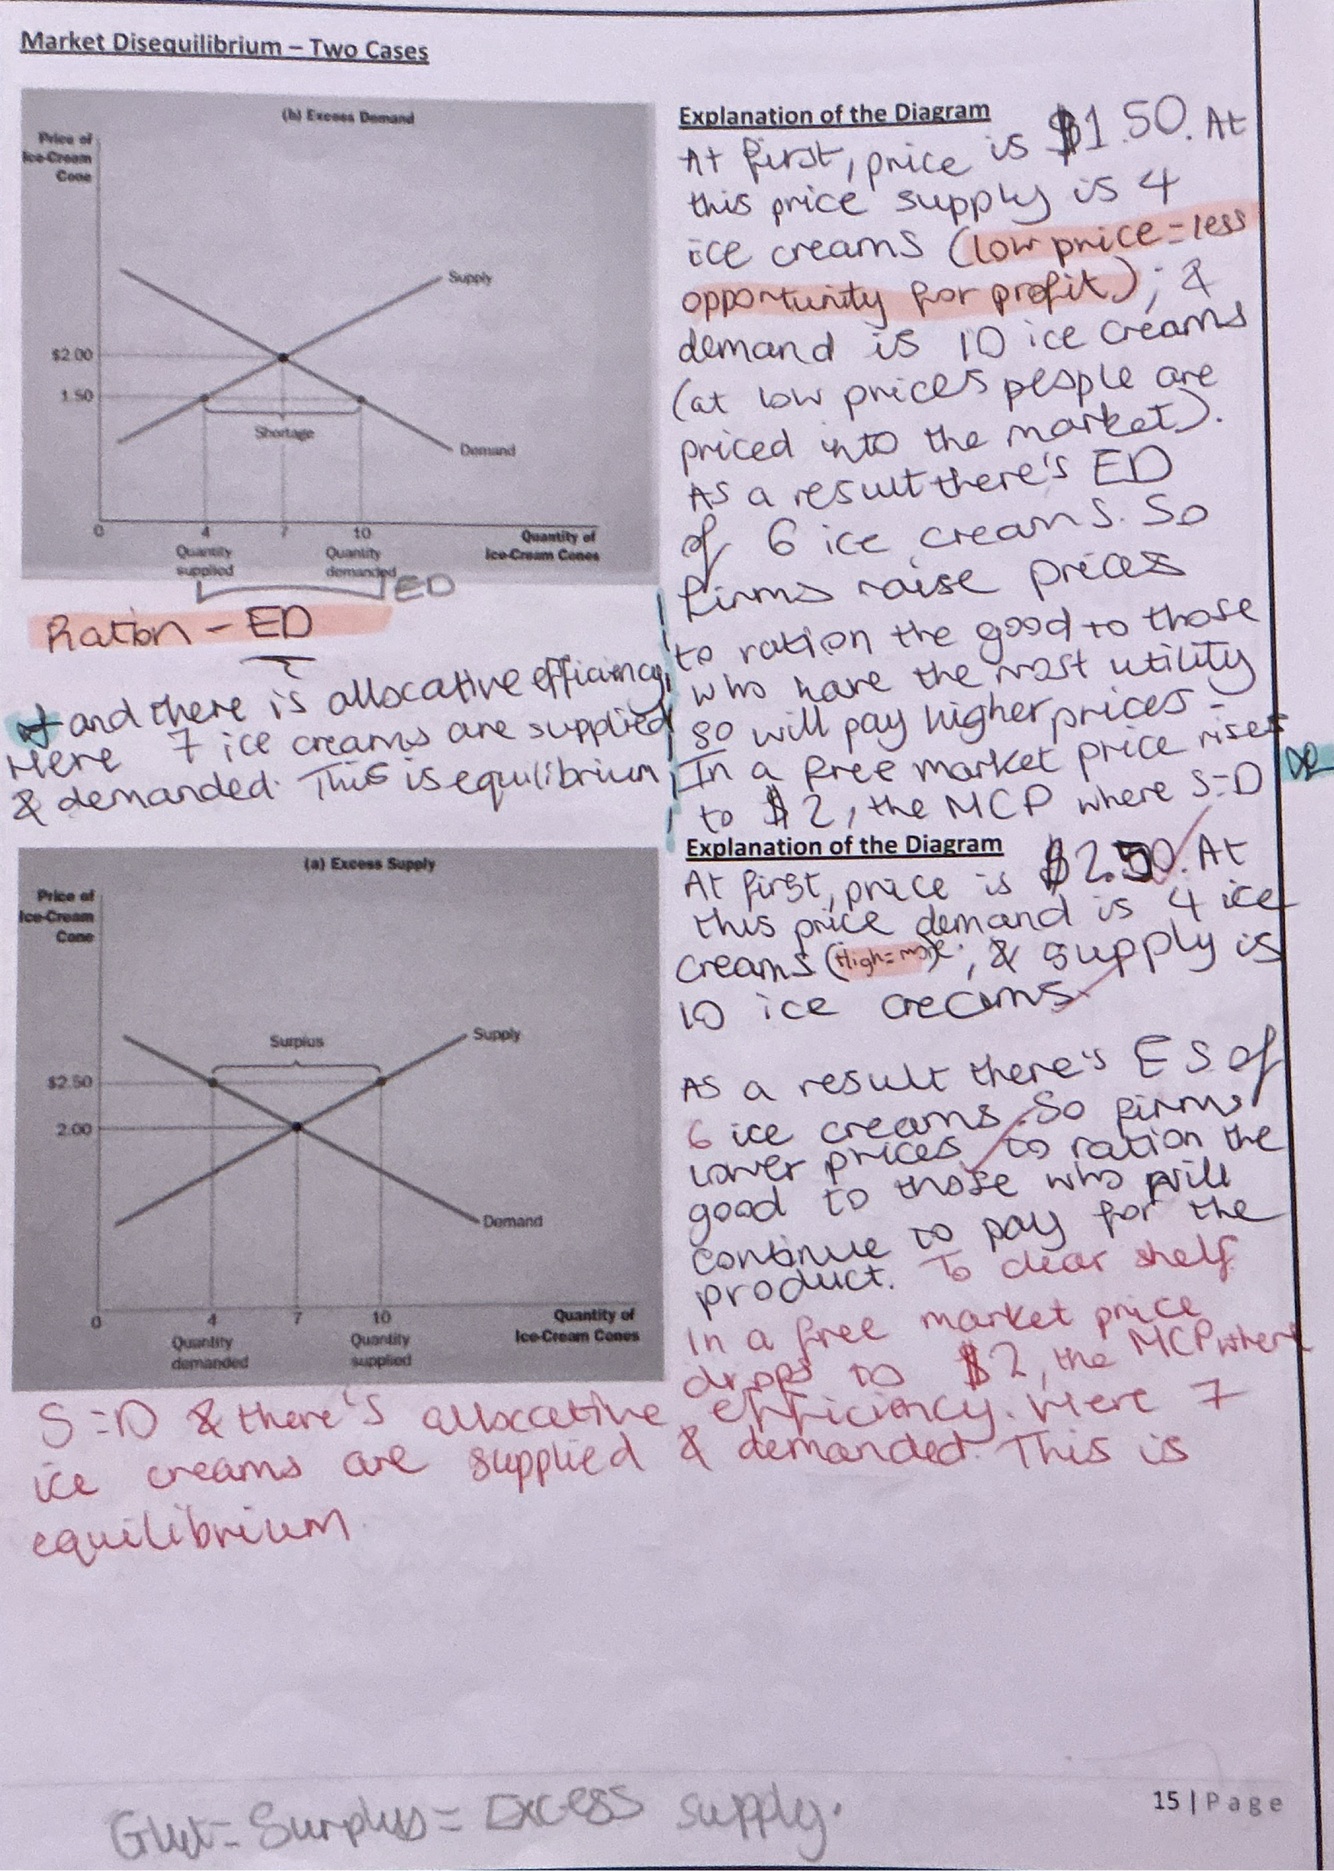 Market Disequilibrium – Two Cases
(b) Excess Demand
Price of
Ice-Cream
Cone
Supply
$2.00
1.50
Shortage
Demand
0
4
7
10
Quantity of
Ice-Cream Cones
Quantity
supplied
Quantity
demanded
ED
Ration – ED
Explanation of the Diagram
At first, price is $1.50. At
this price supply is 4
ice creams (low price = less
opportunity for profit); &
demand is 10 ice creams
(at low prices people are
priced into the market).
As a result there's ED
of 6 ice creams. So
firms raise prices
to ration the good to those
who have the most utility
so will pay higher prices.
In a free market price rises
to $2, the MCP where S=D
and there is allocative efficiency.
Here 7 ice creams are supplied
& demanded. This is equilibrium
(a) Excess Supply
Price of
Ice-Cream
Cone
Surplus
Supply
$2.50
2.00
Demand
0
4
7
10
Quantity of
Ice-Cream Cones
Quantity
demanded
Quantity
supplied
Explanation of the Diagram
At first, price is $2.50. At
this price demand is 4 ice
creams (High = more); & supply is
10 ice creams
As a result there's ES of
6 ice creams. So firms
lower prices to ration the
good to those who will
continue to pay for the
product. To clear shelf
In a free market price
drops to $2, the MCP where
S=D & there's allocative efficiency. Here 7
ice creams are supplied & demanded. This is
equilibrium.
Glut = Surplus = Excess supply.
15 | Page